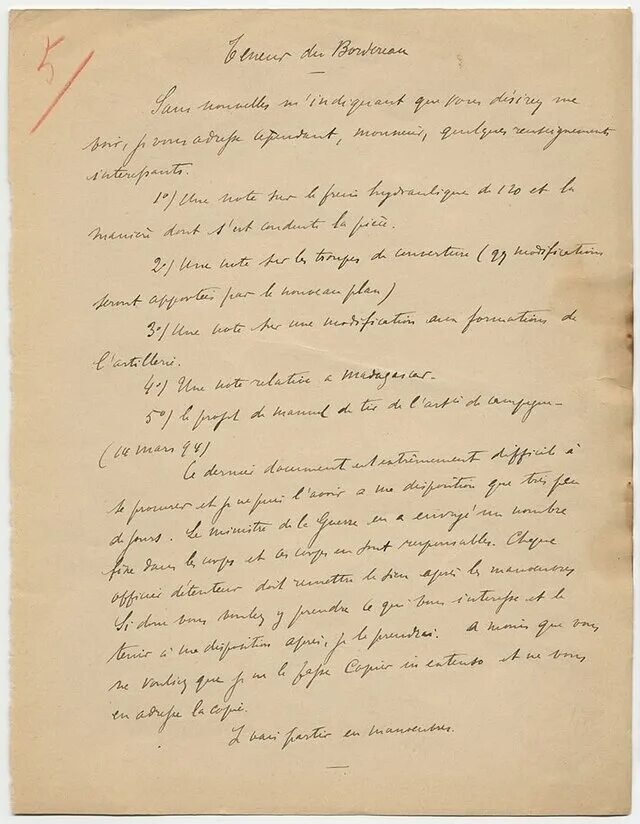 5
Teneur du Bordereau
Sans nouvelles m'indiquant que vous désirez me
voir, je vous adresse cependant, monsieur, quelques renseignements
intéressants.
1º) Une note sur le frein hydraulique de 120 et la
manière dont s'est conduite la pièce.
2º) Une note sur les troupes de couverture (qq modifications
seront apportées par le nouveau plan)
3º) Une note sur une modification aux formations de
l'artillerie.
4º) Une note relative a Madagascar.
5º) le projet de manuel de tir de l'artie de campagne
(14 mars 94)
Ce dernier document est extrêmement difficile à
se procurer et je ne puis l'avoir a ma disposition que très peu
de jours. Le ministre de la Guerre en a envoyé un nombre
fixe dans les corps et ces corps en sont responsables. Chaque
officier détenteur doit remettre le sien après les manoeuvres
Si donc vous voulez y prendre ce qui vous intéresse et le
tenir à ma disposition après, je le prendrai. A moins que vous
ne vouliez que je ne le fasse copier in extenso et ne vous
en adresse la copie.
Je vais partir en manoeuvres.